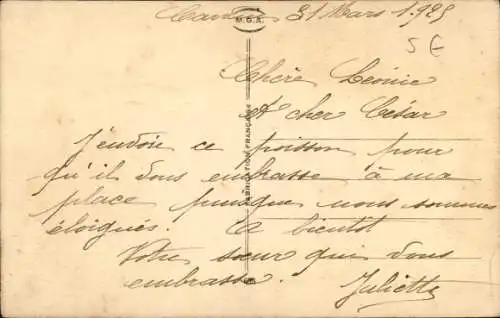 31 Mars 1925
M.G.A.
5 €
Chère Léonie
Et cher César
J'envoie ce poisson pour
qu'il vous embrasse à ma
place puisque nous sommes
éloigués. A bientôt
Votre sœur qui vous
embrasse. Juliette
FABRICATION FRANÇAISE